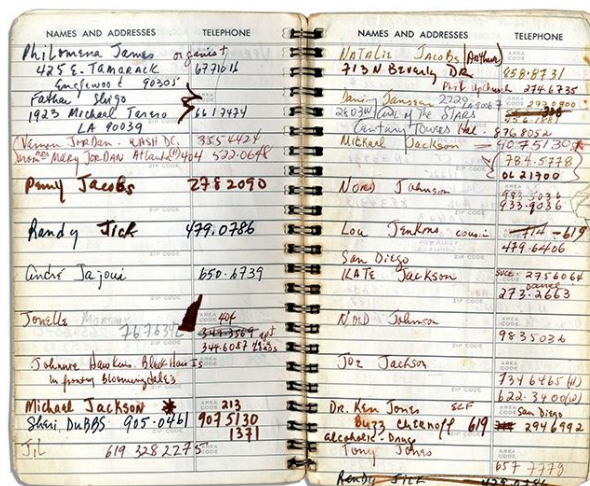 NAMES AND ADDRESSES TELEPHONE
Philomena James organist
425 E. TAMARACK 6771016
Englewood 90305
Father Sligo
1923 Michael Torero 6617474
LA 90039
Vernon JORDAN - WASH DC. 355 4424
MARY JORDAN Atlanta (H) 404 522.0648
Penny Jacobs 278 2090
Randy Jick 479.0786
André Jajoui 650.6739
404
Jonells
767634 344.3569
344.6087
Johnnie Hawkins. Black Hair Is
in front of Bloomingdale's
Michael Jackson 213
Sheri DUBBS 905.0461 9075130
1371
Jil 619 328 2275
NAMES AND ADDRESSES TELEPHONE
NATALIE JACOBS (Author)
713 N Beverly DR. 858.8731
274.6735
Danny Janssen 2220
2803W Ave of the STARS
Century Towers 876 8052
Michael Jackson 9075130
784.5778
OL 21700
NORD Johnson 983 5036
933.9036
Lou Jenkins cousin 714 - 619
479.6406
San Diego
KATE Jackson SVCE. 2756064
273.2663
NORD Johnson
9835036
Joe Jackson
7346465 (H)
622.3400 (W)
Dr. Ken Jones San Diego
Buzz chernoff 619 294 6992
alcoholic - Drugs
Tony Jones
657 7779
Randy Jick